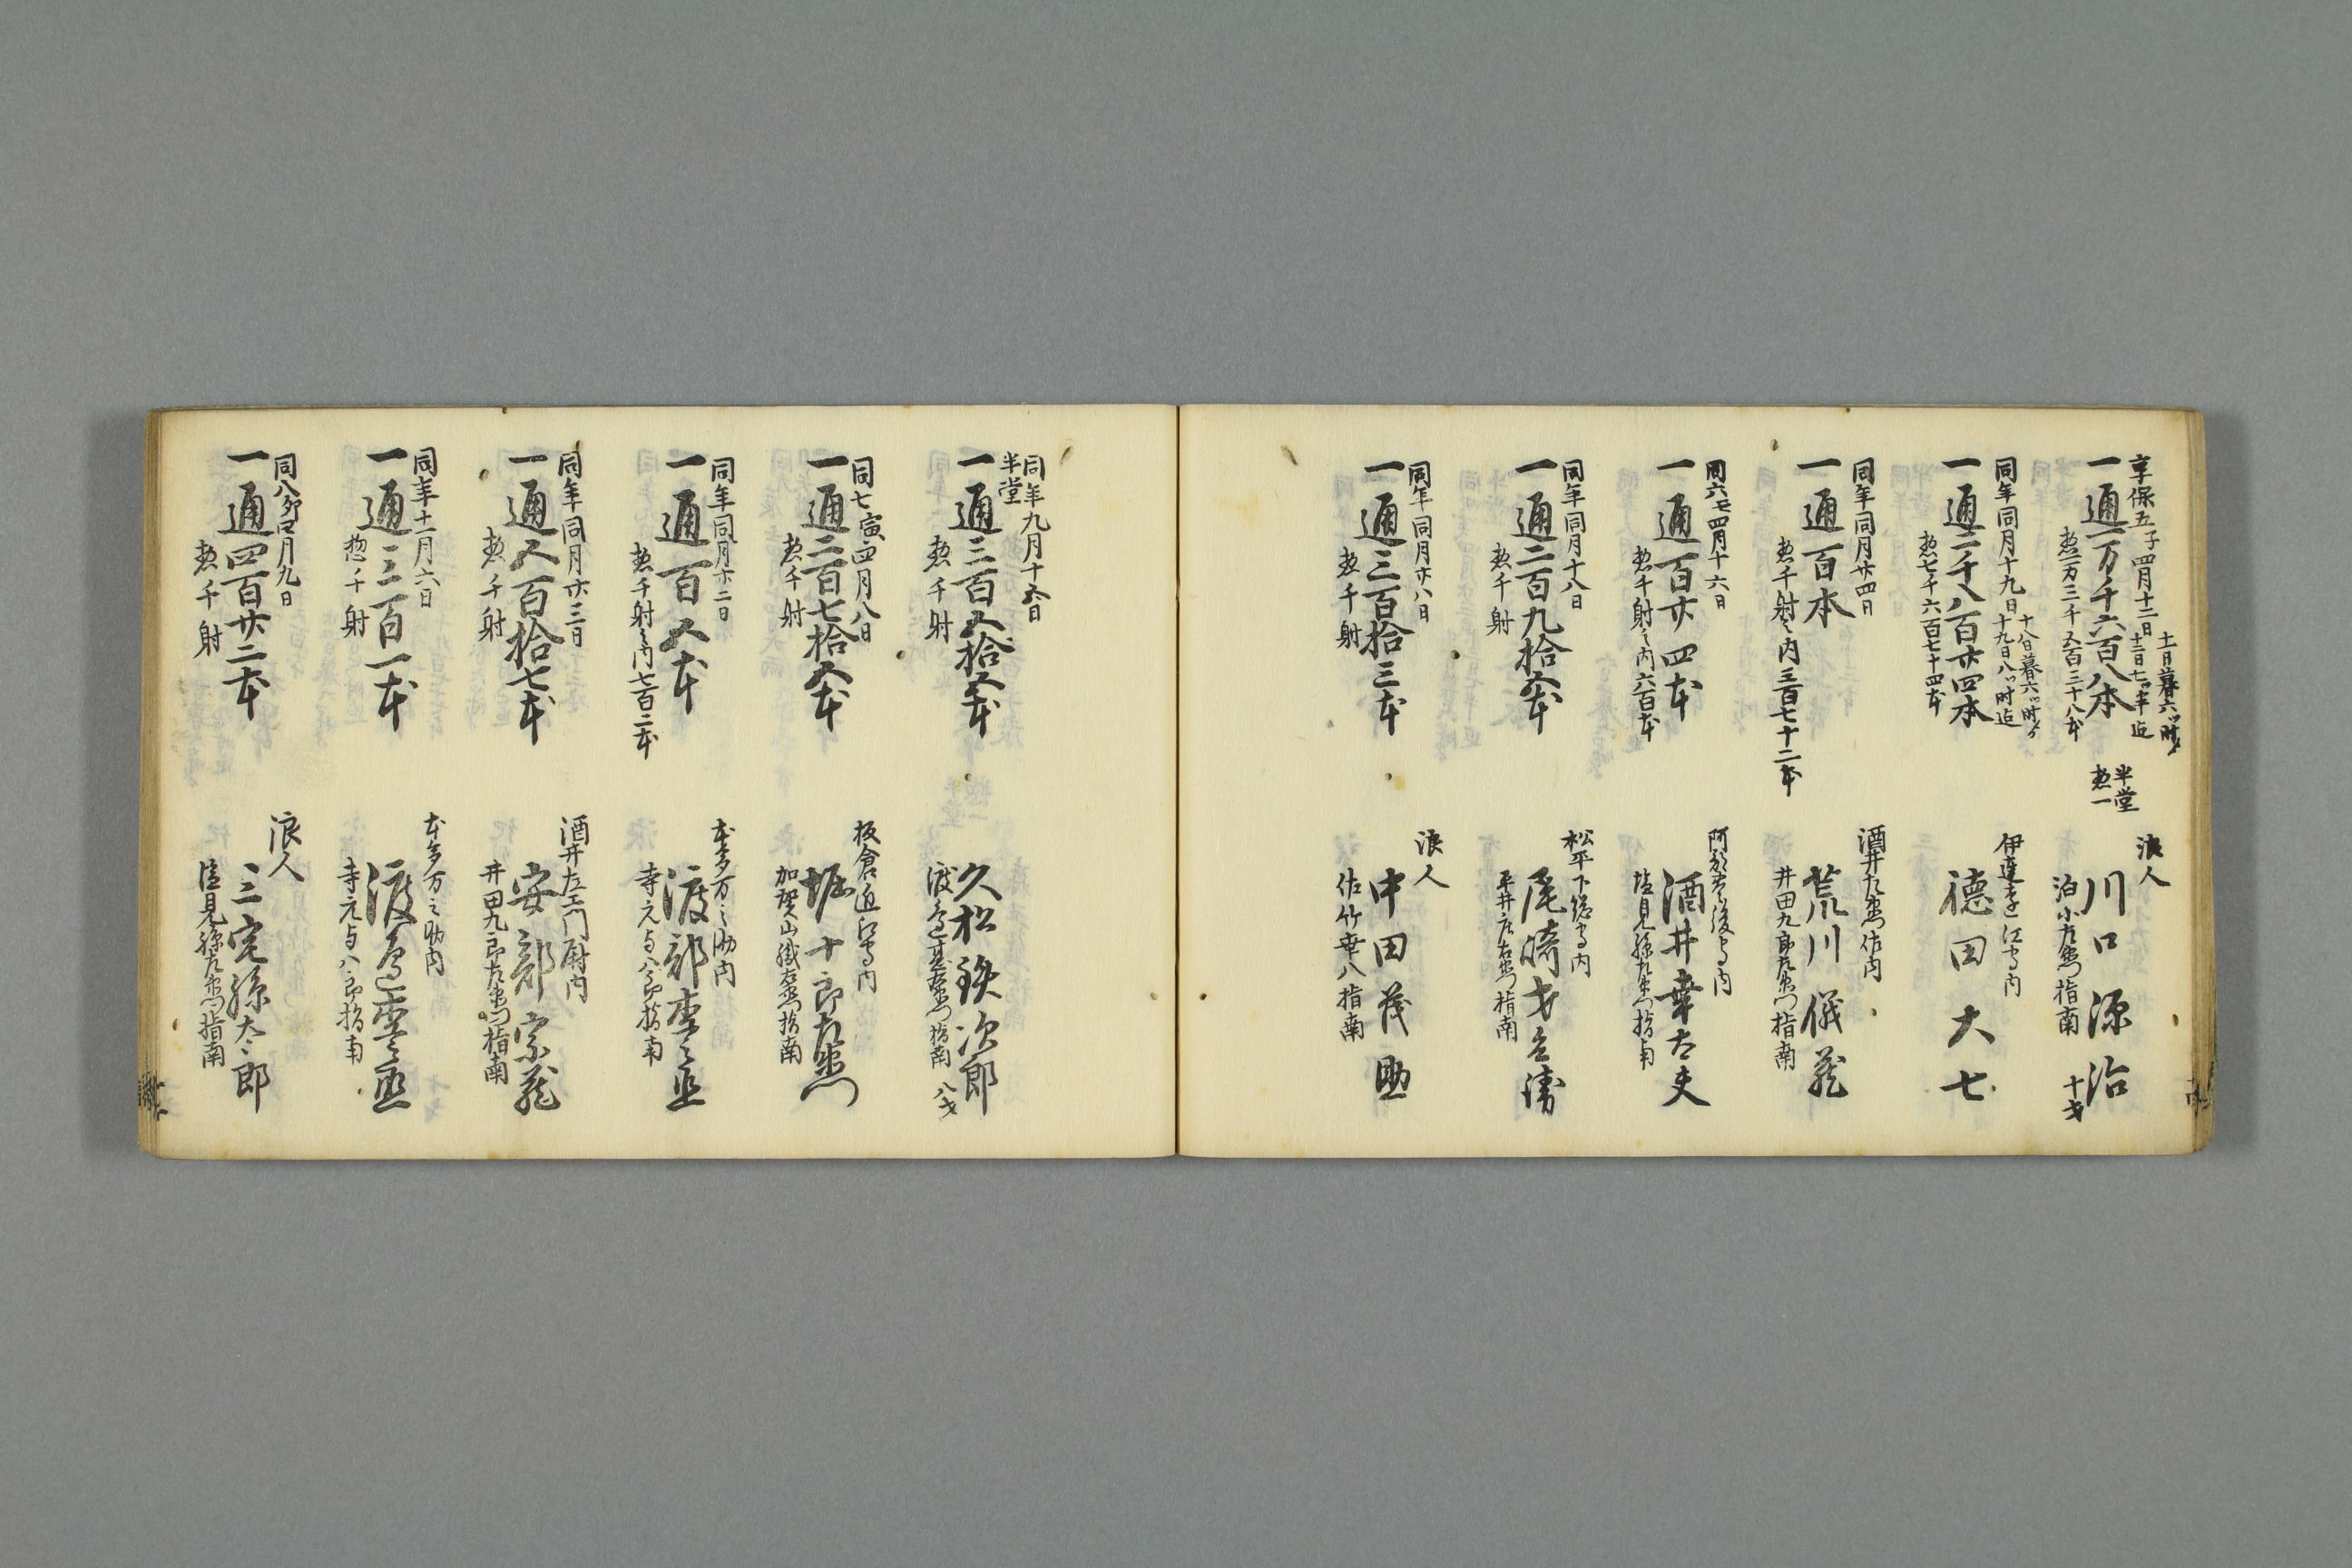 享保五子四月十二日
十一日暮六ツ時ゟ
十二日七ツ半迄
一通一万千六百八本
惣一万三千五百三十八本
半堂
惣一
浪人
川口源治
泊小左衛門指南
十才
同年同月十九日
十八日暮六ツ時ゟ
十九日八ツ時迄
一通二千八百廿四本
惣七千六百七十四本
伊達遠江守内
徳田大七
同年同月廿四日
一通百本
惣千射之内三百七十二本
酒井左衛門佐内
荒川儀蔵
井田九郎左衛門指南
同六丑四月十六日
一通百廿四本
惣千射之内六百本
後守内
酒井幸太夫
塩見孫左衛門指南
同年同月十八日
一通二百九拾五本
惣千射
松平下総守内
尾崎才兵衛
平井庄右衛門指南
同年同月廿八日
一通三百拾三本
惣千射
浪人
中田茂助
佐竹幸八指南
同年九月十五日
半堂
一通三百五拾五本
惣千射
久松鉄次郎
渡辺甚左衛門指南
八才
同七寅四月八日
一通二百七拾五本
惣千射
板倉近江守内
堀十郎左衛門
加賀山織右衛門指南
同年同月廿二日
一通百五本
惣千射之内七百二本
本多万之助内
渡部李之丞
寺元与八郎指南
同年同月廿三日
一通五百拾七本
惣千射
酒井左衛門尉内
安部宗蔵
井田九郎左衛門指南
同年十一月六日
一通三百一本
惣千射
本多万之助内
渡辺李之丞
寺元与八郎指南
同八卯四月九日
一通四百廿二本
惣千射
浪人
三宅孫太郎
塩見孫左衛門指南